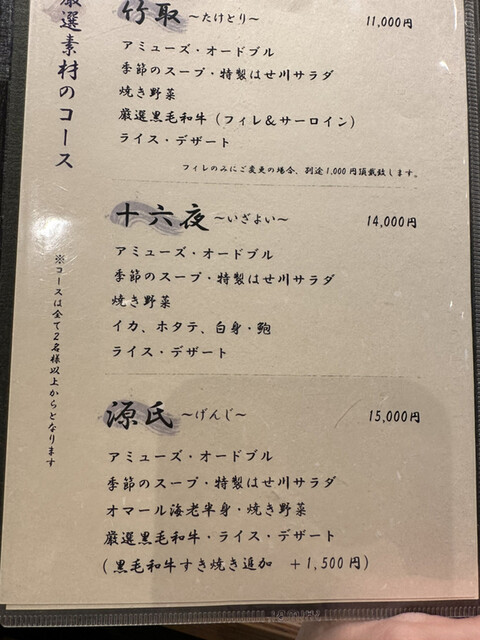 厳選素材のコース
※コースは全て2名様以上からとなります
竹取 ～たけとり～ 11,000円
アミューズ・オードブル
季節のスープ・特製はせ川サラダ
焼き野菜
厳選黒毛和牛（フィレ＆サーロイン）
ライス・デザート
フィレのみにご変更の場合、別途1,000円頂戴致します。
十六夜 ～いざよい～ 14,000円
アミューズ・オードブル
季節のスープ・特製はせ川サラダ
焼き野菜
イカ、ホタテ、白身・鮑
ライス・デザート
源氏 ～げんじ～ 15,000円
アミューズ・オードブル
季節のスープ・特製はせ川サラダ
オマール海老半身・焼き野菜
厳選黒毛和牛・ライス・デザート
(黒毛和牛すき焼き追加 ＋1,500円)